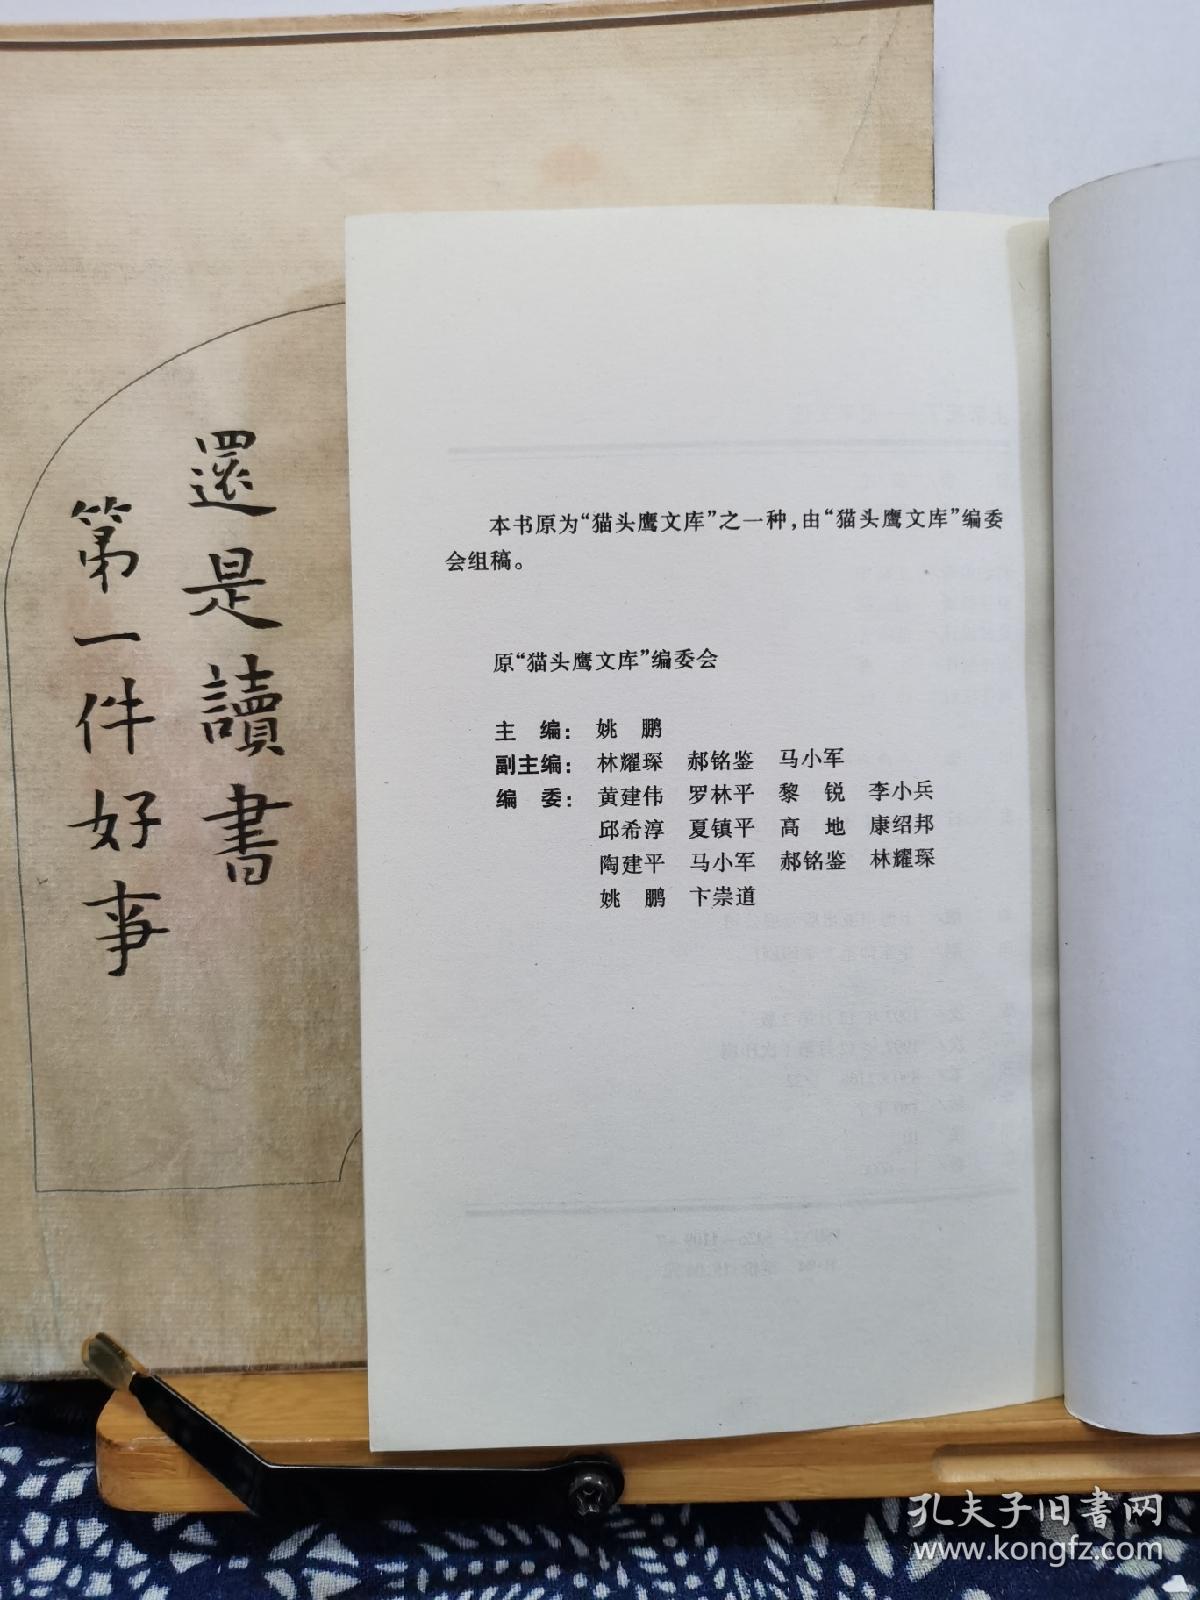 還是讀書
第一件好事
本书原为“猫头鹰文库”之一种,由“猫头鹰文库”编委
会组稿。
原“猫头鹰文库”编委会
主 编: 姚 鹏
副主编: 林耀琛 郝铭鉴 马小军
编 委: 黄建伟 罗林平 黎 锐 李小兵
邱希淳 夏镇平 高 地 康绍邦
陶建平 马小军 郝铭鉴 林耀琛
姚 鹏 卞崇道
孔夫子旧書网
www.kongfz.com